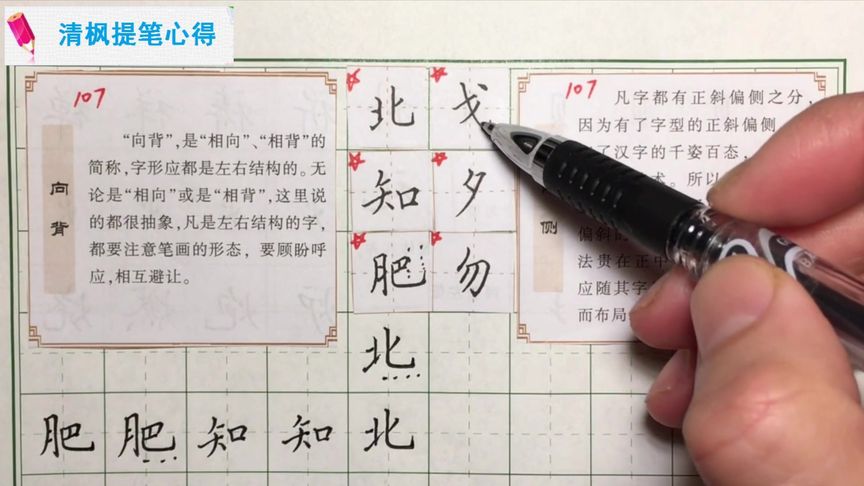 清枫提笔心得
107
向背
“向背”,是“相向”、“相背”的
简称,字形应都是左右结构的。无
论是“相向”或是“相背”,这里说
的都很抽象,凡是左右结构的字,
都要注意笔画的形态,要顾盼呼
应,相互避让。
北 戈
知 夕
肥 勿
北
肥 肥 知 知 北
107
侧
凡字都有正斜偏侧之分,
因为有了字型的正斜偏侧
了汉字的千姿百态,
术。所以
偏斜的
法贵在正中
应随其字
而布局